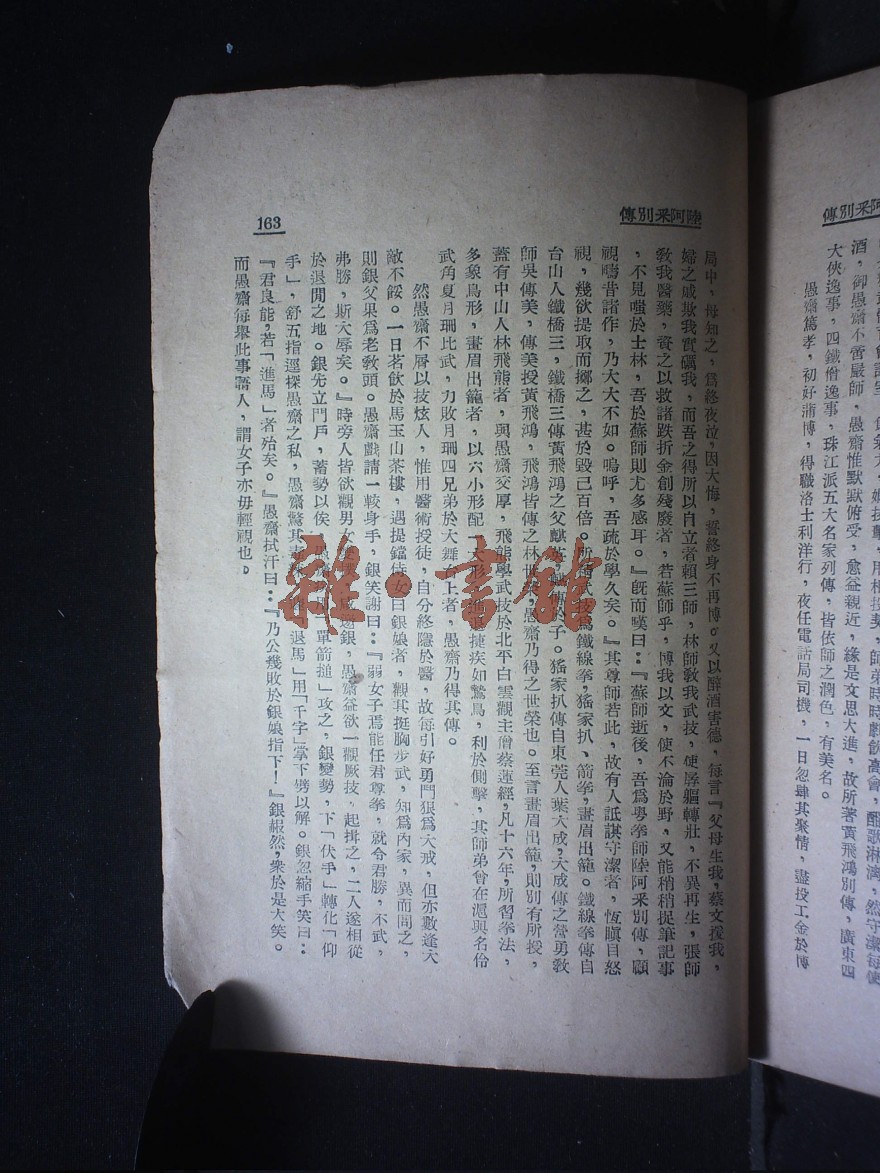 陸阿采別傳
163
局中，母知之，爲終夜泣，因大悔，誓終身不再博。又以醉酒害德，每言『父母生我，蔡文援我，
婦之戚欺我實礪我，而吾之得所以自立者賴三師，林師敎我武技，使孱軀轉壯，不異再生，張師
敎我醫藥，資之以救諸跌折金創殘廢者，若蘇師乎，博我以文，使不淪於野，又能稍稍捉筆記事
，不見嗤於士林，吾於蘇師則尤多感耳。』旣而嘆曰：『蘇師逝後，吾爲粤拳師陸阿采別傳，顧
視疇昔諸作，乃大大不如。嗚呼，吾疏於學久矣。』其尊師若此，故有人詆諆守潔者，恆瞋目怒
視，幾欲提取而擲之，甚於毀己百倍。所
鐵線拳，猺家扒、箭拳，畫眉出籠。鐵線拳傳自
台山人鐵橋三，鐵橋三傳黃飛鴻之父麒英，
子。猺家扒傳自東莞人葉大成，大成傳之營勇敎
師吳傳美，傳美授黃飛鴻，飛鴻皆傳之林世榮，愚齋乃得之世榮也。至言畫眉出籠，則別有所授，
蓋有中山人林飛熊者，與愚齋交厚，飛熊學武技於北平白雲觀主僧蔡蓮經，凡十六年，所習拳法，
多象鳥形，畫眉出籠者，以六小形配一大形，
捷疾如鷙鳥，利於側擊，其師弟曾在滬與名伶
武角夏月珊比武，力敗月珊四兄弟於大舞台上者，愚齋乃得其傳。
然愚齋不屑以技炫人，惟用醫術授徒，自分終隱於醫，故每引好勇鬥狠爲大戒，但亦數逢大
敵不餒。一日茗飮於馬玉山茶樓，遇提鐺侍女曰銀娘者，觀其挺胸步武，知爲內家，異而問之，
則銀父果爲老敎頭。愚齋戲請一較身手，銀笑謝曰：『弱女子焉能任君尊拳，就令君勝，不武，
弗勝，斯大辱矣。』時旁人皆欲觀男女
咸慫銀，愚齋益欲一觀厥技，起揖之，二人遂相從
於退閒之地。銀先立門戶，蓄勢以俟，
單箭搥」攻之，銀變勢，下「伏手」轉化「仰
手」，舒五指逕探愚齋之私，愚齋驚其
退馬」用「千字」掌下劈以解。銀忽縮手笑曰：
『君良能，若「進馬」者殆矣。』愚齋拭汗曰：『乃公幾敗於銀娘指下！』銀赧然，衆於是大笑。
而愚齋每舉此事語人，謂女子亦毋輕視也。
雜·書館
陸阿采別傳
酒，御愚齋不啻嚴師，愚齋惟默默俯受，愈益親近，緣是文思大進，故所著黃飛鴻別傳，廣東四
大俠逸事，四鐵僧逸事，珠江派五大名家列傳，皆依師之潤色，有美名。
愚齋篤孝，初好蒲博，得職洛士利洋行，夜任電話局司機，一日忽肆其聚情，盡投工金於博